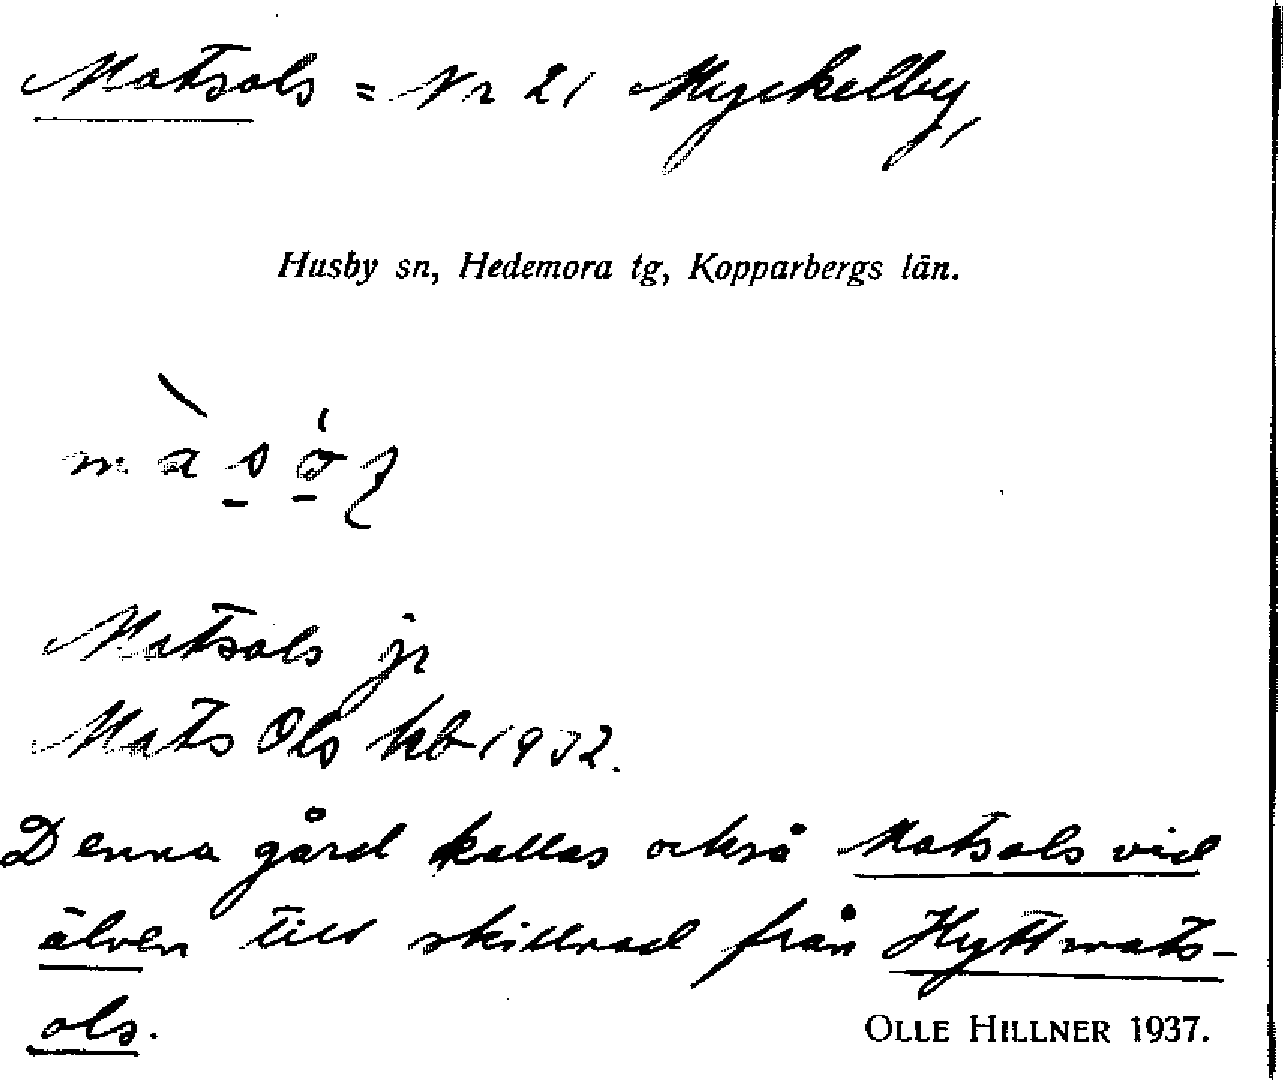 Matsols = Nr 21 Myckelby,
Husby sn, Hedemora tg, Kopparbergs län.
Matsols jr
Mats Ols kb 1932.
Denna gård kallas också Matsols vid
älven till skillnad från Hyttmats-
ols.
OLLE HILLNER 1937.